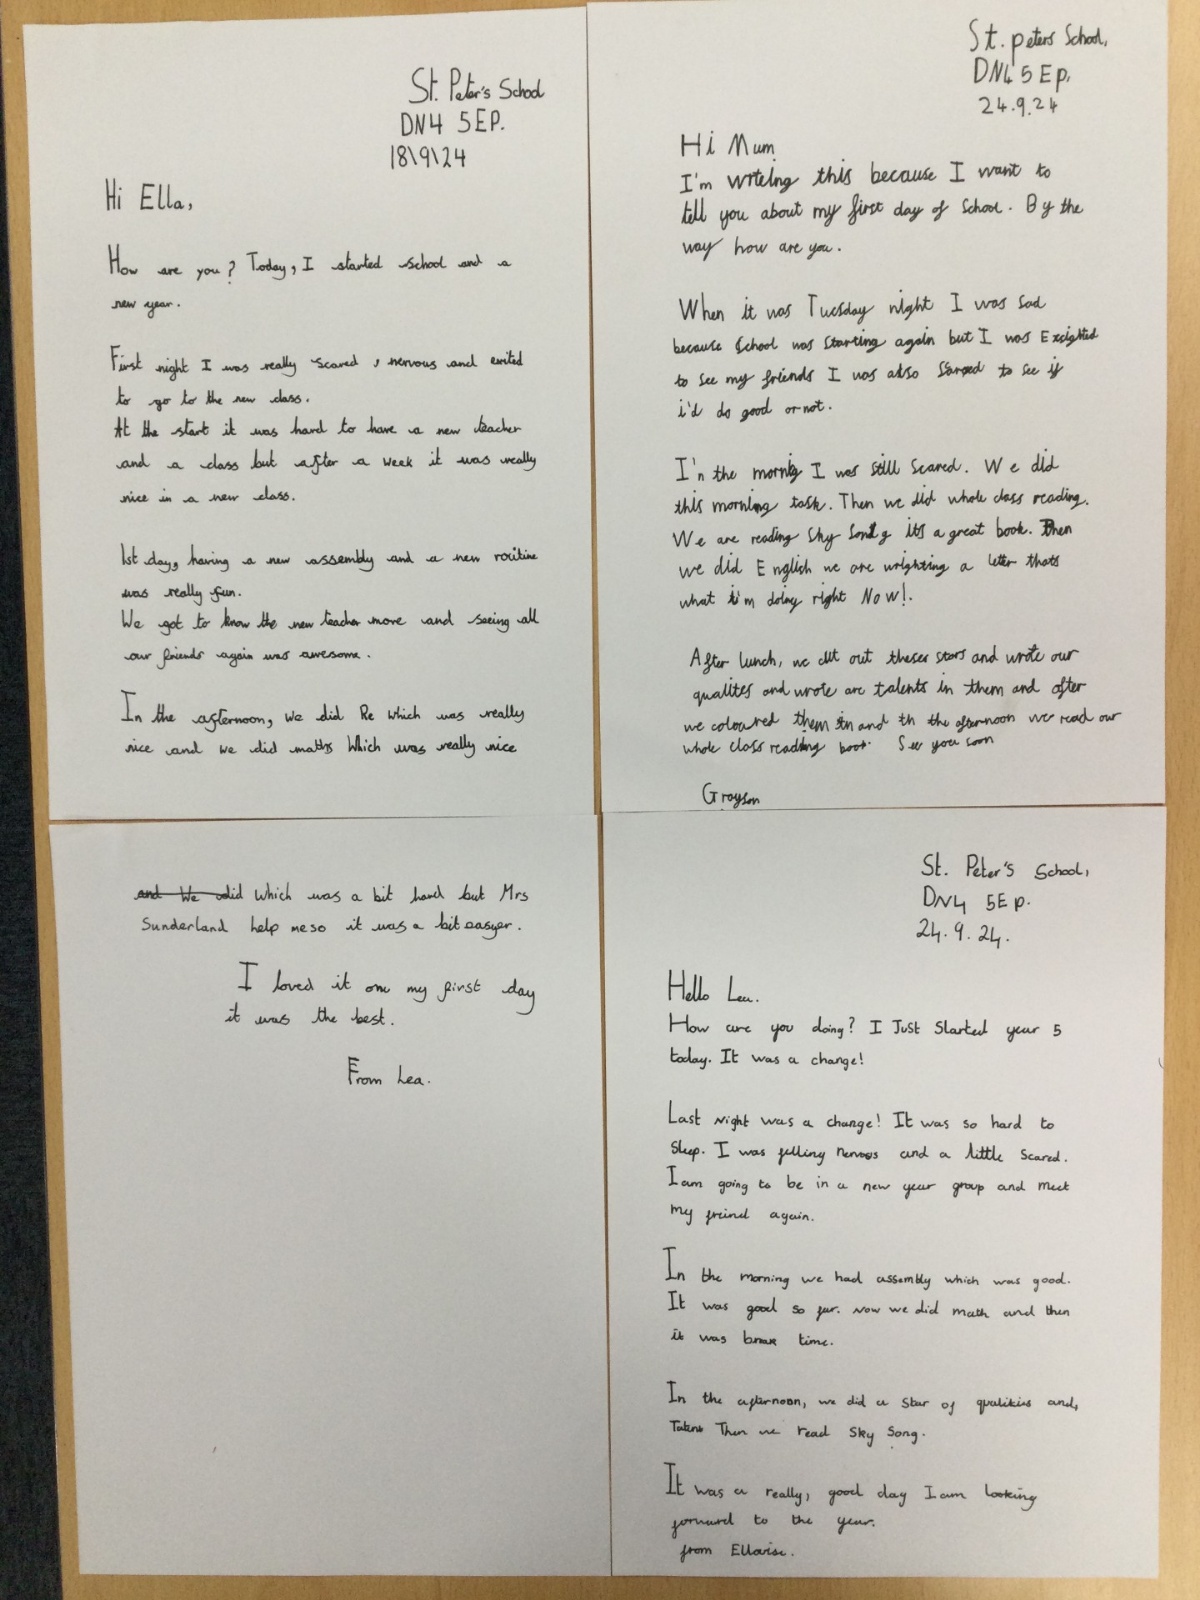 St. Peter's School
DN4 5EP.
18\9\24
Hi Ella,
How are you? Today, I started school and a
new year.
First night I was really scared, nervous and exited
to go to the new class.
At the start it was hard to have a new teacher
and a class but after a week it was really
nice in a new class.
1st day, having a new assembly and a new routine
was really fun.
We got to know the new teacher more and seeing all
our friends again was awesome.
In the afternoon, we did Re which was really
nice and we did maths Which was really nice
and We did Which was a bit hard but Mrs
Sunderland help me so it was a bit easyer.
I loved it one my first day
it was the best.
From Lea.
St. peters School,
DN4 5Ep.
24.9.24
Hi Mum
I'm writeing this because I want to
tell you about my first day of School. By the
way how are you.
When it was Tuesday night I was sad
because School was starting again but I was Exsighted
to see my friends I was also Scared to see if
i'd do good or not.
I'n the morning I was still Scared. We did
this morning task. Then we did whole class reading.
We are reading Sky Song its a great book. Then
we did English we are wrighting a leter thats
what i'm doing right Now!.
After lunch, we cut out theser stars and wrote our
qualites and wrote are talents in them and after
we coloured them in and the afternoon we read our
whole class reading book. See you soon
Grayson
St. Peter's School,
DN4 5Ep.
24.9.24.
Hello Lea.
How are you doing? I Just Started year 5
today. It was a change!
Last Night was a change! It was so hard to
Sleep. I was felling nervos and a little Scared.
I am going to be in a new year group and meet
my freind again.
In the morning we had assembly which was good.
It was good so far. Now we did math and then
it was break time.
In the afternoon, we did a Star of qualities and,
Talent Then we read Sky Song.
It was a really, good day I am looking
forward to the year.
from Ellarise.